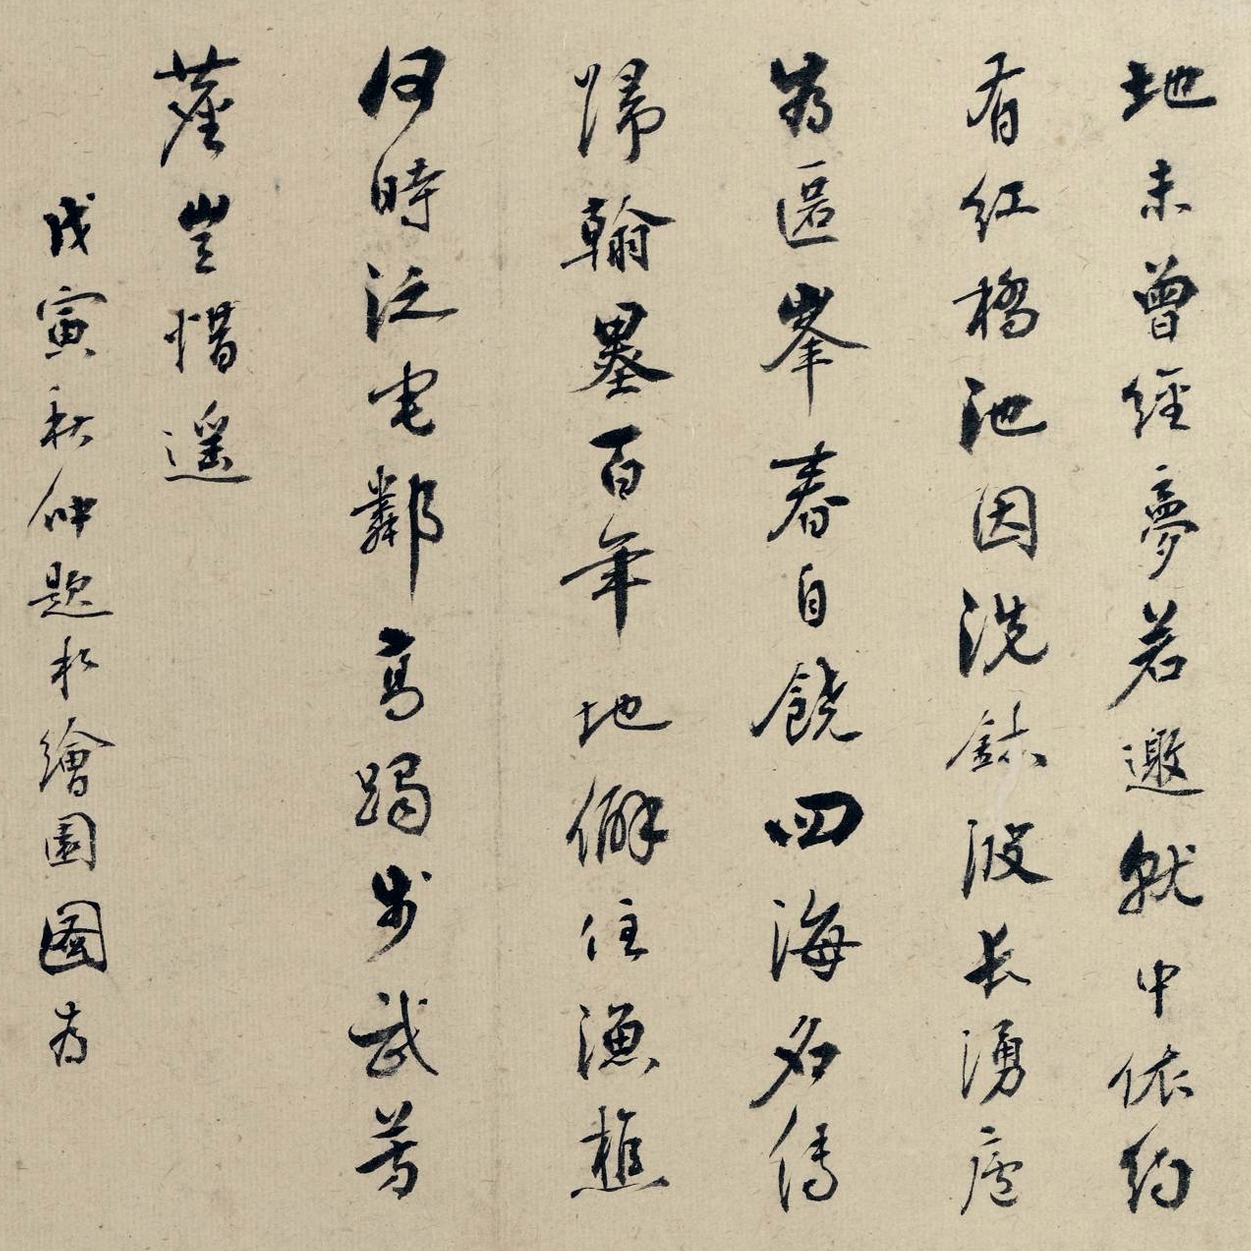 地未曾經夢若邀就中依約
有紅橋池因洗鉢波長湧廬
為區峯春自饒四海名傳
歸翰墨百年地僻住漁樵
何時泛宅鄰高躅步武芳
塵豈惜遥
戊寅秋仲題水繪園圖為